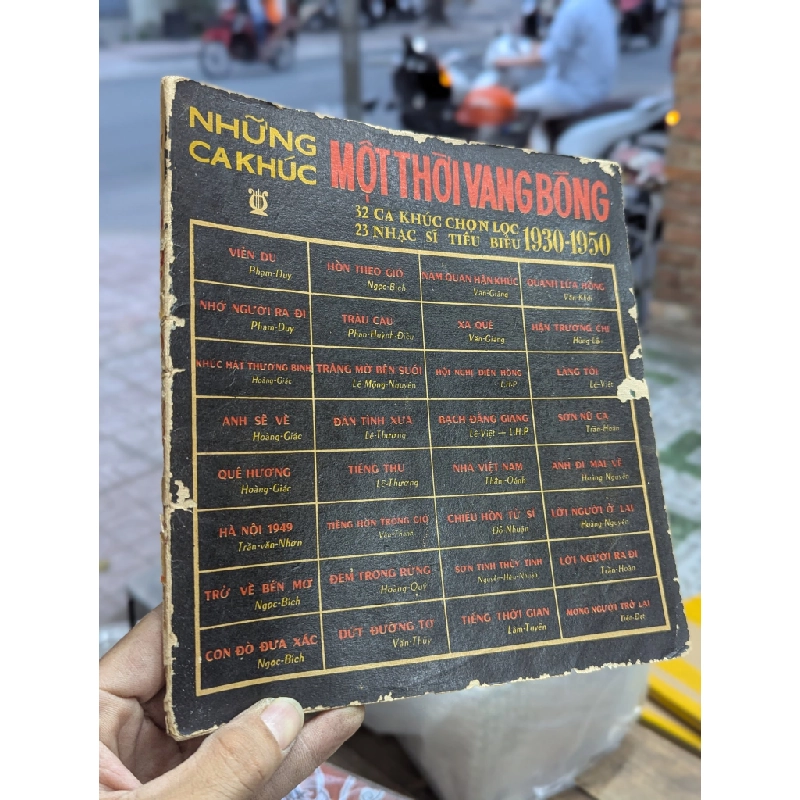 NHỮNG
CA KHÚC
MỘT THỜI VANG BÓNG
32 CA KHÚC CHỌN LỌC
23 NHẠC SĨ TIÊU BIỂU 1930-1950
VIỄN DU
Phạm-Duy
HỒN THEO GIÓ
Ngọc-Bích
NAM QUAN HẬN KHÚC
Văn-Giảng
QUANH LỬA HỒNG
NHỚ NGƯỜI RA ĐI
Phạm-Duy
TRẦU CAU
Phan-Huỳnh-Điểu
XA QUÊ
Văn-Giảng
HẬN TRƯƠNG CHI
KHÚC HÁT THƯƠNG BINH
Hoàng-Giác
TRĂNG MỜ BÊN SUỐI
Lê Mộng-Nguyên
HỘI NGHỊ DIÊN HỒNG
L.H.P
LÀNG TÔI
Lê-Việt
ANH SẼ VỀ
Hoàng-Giác
ĐÀN TÌNH XƯA
Lê-Thương
BẠCH ĐẰNG GIANG
Lê-Việt — L.H.P
SƠN NỮ CA
Trần-Hoàn
QUÊ HƯƠNG
Hoàng-Giác
TIẾNG THU
Lê-Thương
NHÀ VIỆT NAM
Thẩm-Oánh
ANH ĐI MAI VỀ
Hoàng Nguyên
HÀ NỘI 1949
Trần-văn-Nhơn
TIẾNG HỜN TRONG GIÓ
CHIÊU HỒN TỬ SĨ
Đỗ Nhuận
LỜI NGƯỜI Ở LẠI
Hoàng-Nguyên
TRỞ VỀ BẾN MƠ
Ngọc-Bích
ĐÊM TRONG RỪNG
Hoàng-Quý
SƠN TINH THỦY TINH
LỜI NGƯỜI RA ĐI
Trần-Hoàn
CON ĐÒ ĐƯA XÁC
Ngọc-Bích
DỨT ĐƯỜNG TƠ
Văn-Thủy
TIẾNG THỜI GIAN
Lâm-Tuyền
MONG NGƯỜI TRỞ LẠI